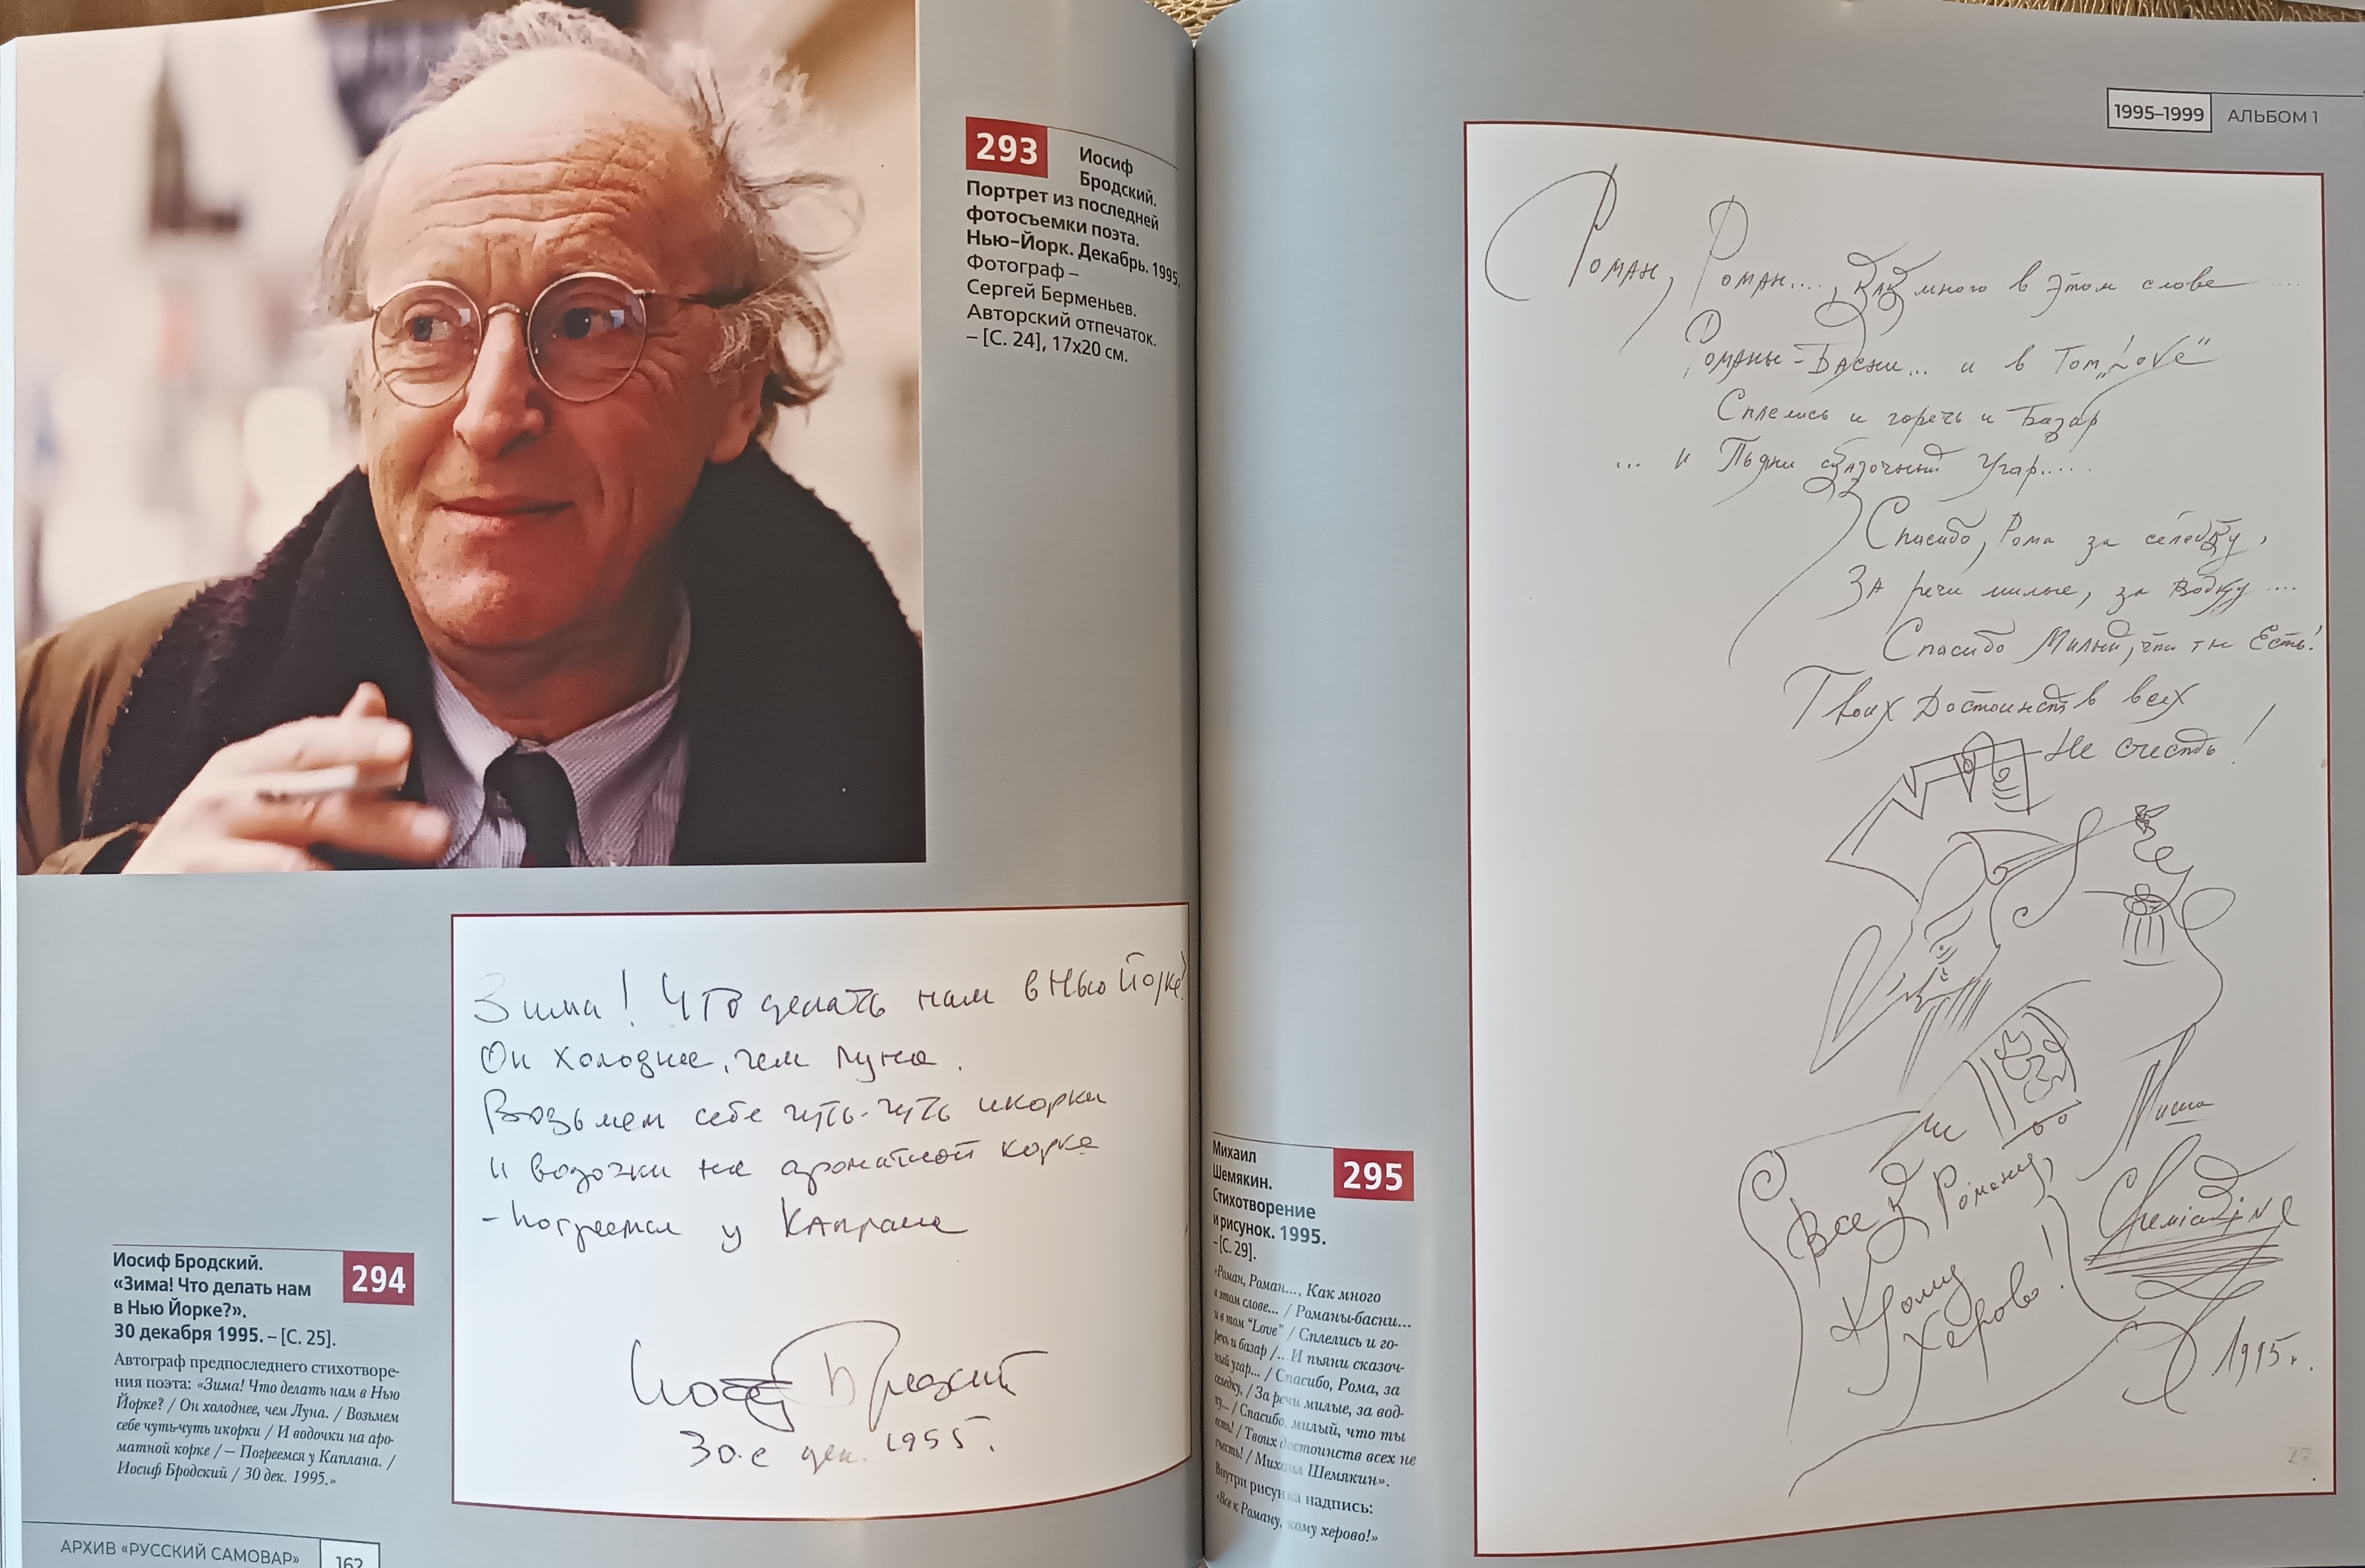 293
Иосиф
Бродский.
Портрет из последней
фотосъемки поэта.
Нью-Йорк. Декабрь. 1995.
Фотограф –
Сергей Берменьев.
Авторский отпечаток.
– [С. 24], 17х20 см.
Зима! Что делать нам в Нью Йорке?
Он холоднее, чем Луна.
Возьмем себе чуть-чуть икорки
и водочки на ароматной корке
– погреемся у Каплана
Иосиф Бродский
30.е дек. 1995.
294
Иосиф Бродский.
«Зима! Что делать нам
в Нью Йорке?».
30 декабря 1995. – [С. 25].
Автограф предпоследнего стихотворе-
ния поэта: «Зима! Что делать нам в Нью
Йорке? / Он холоднее, чем Луна. / Возьмем
себе чуть-чуть икорки / И водочки на аро-
матной корке / – Погреемся у Каплана. /
Иосиф Бродский / 30 дек. 1995.»
АРХИВ «РУССКИЙ САМОВАР»
162
1995–1999
АЛЬБОМ 1
Роман, Роман...., как много в этом слове ....
Романы-Басни... и в том „Love”
Сплелись и горечь и Базар
... и Пьяни сказочный Угар.....
Спасибо, Рома за селедку,
За речи милые, за водку ....
Спасибо Милый, что ты Есть!
Твоих Достоинств всех
Не счесть!
Все к Роману,
Кому
херово!
Миша
Chemiakine
1995 г.
27.
295
Михаил
Шемякин.
Стихотворение
и рисунок. 1995.
– [С. 29].
«Роман, Роман..., Как много
в этом слове... / Романы-басни...
и в том “Love” / Сплелись и го-
речь и базар /... И пьяни сказоч-
ный угар... / Спасибо, Рома, за
селедку, / За речи милые, за вод-
ку... / Спасибо, милый, что ты
есть! / Твоих достоинств всех не
счесть! / Михаил Шемякин».
Внутри рисунка надпись:
«Все к Роману, кому херово!»